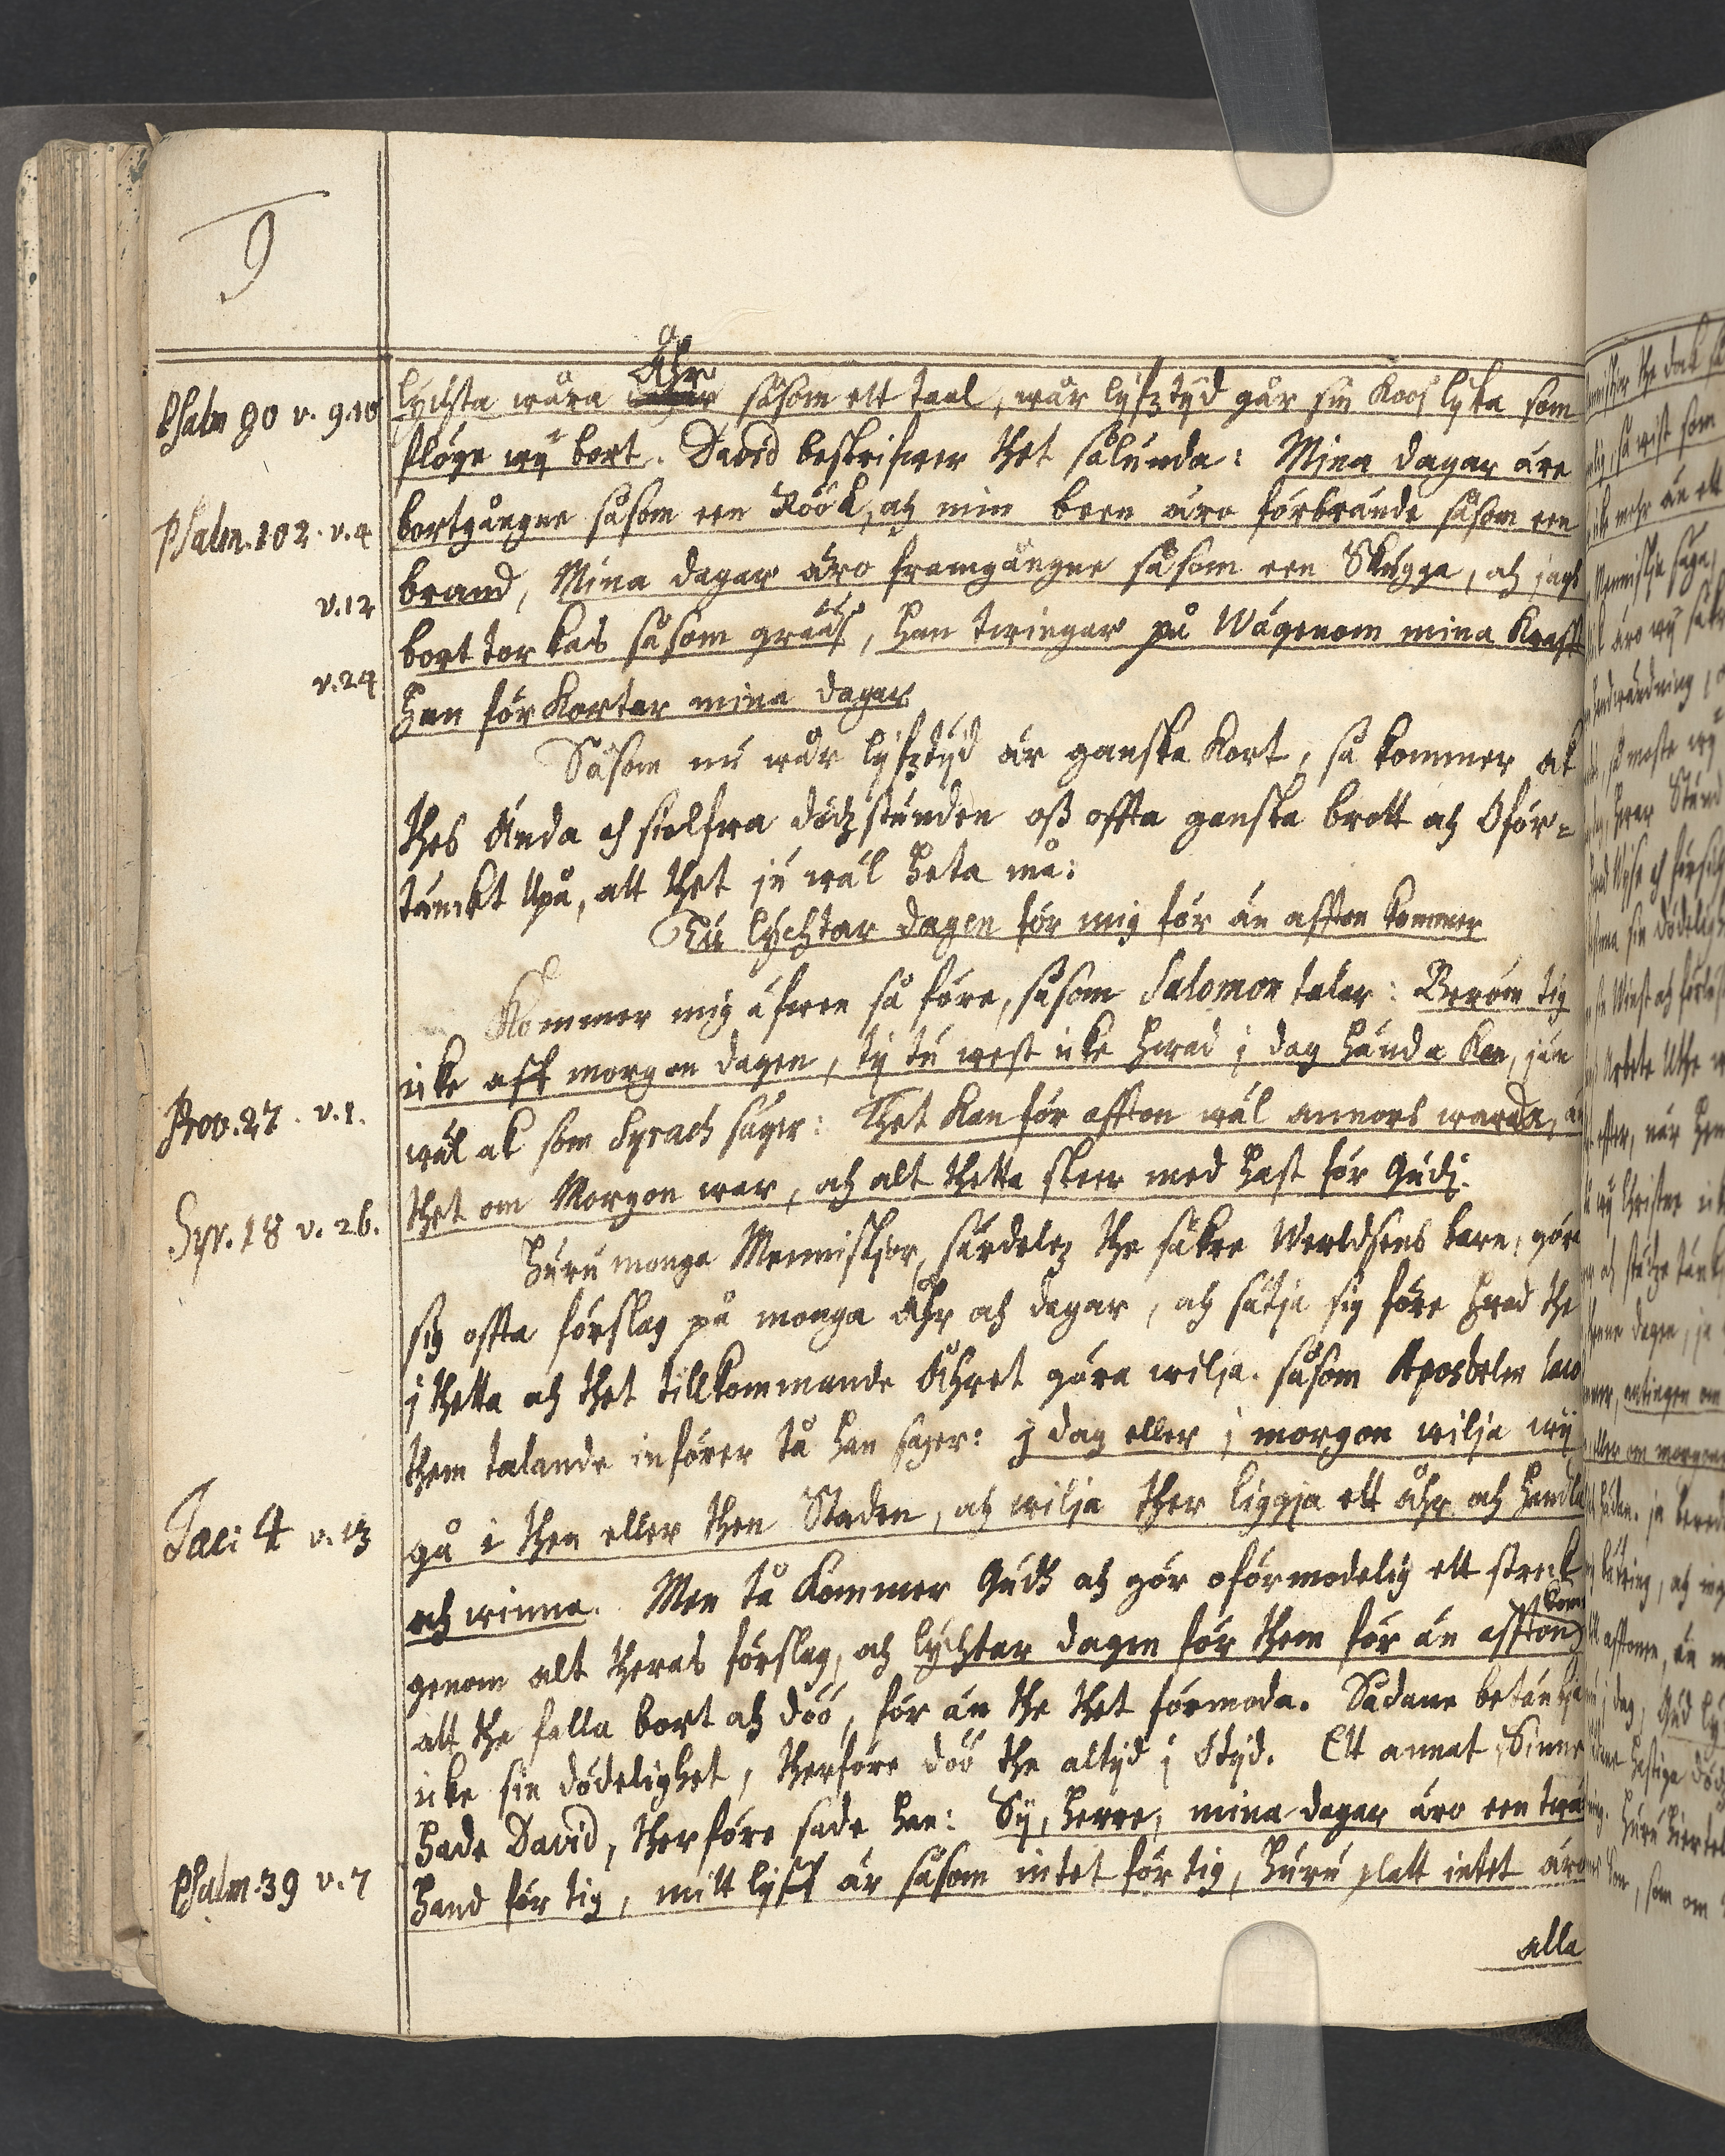 9
Åhr
Psalm 90 v. 9.10 lychta wåra dagar såsom ett taal, wår lyfztyd går sin Koos lyka som
flöge wy bort. David beskrifwer thet sålunda: Mina dagar äre
Psalm. 102. v. 4 bortgångne såsom een Röök, och min been äro förbrände såsom een
v. 12 brand, Mina dagar äro framgångne såsom een Skugga, och jagh
bort torkas såsom grääs, han twingar på Wägenom mina Krafft
v. 24 Han förkortar mina dagar
Såsom nu wår lyfztyd är ganska kort, så kommer ok
thes Ända och sielfwa dödzstunden oss offta ganska brott och Oför=
tänckt Upå, att thet ju wäl heta må:
Tu lychtar dagen för mig för än afften kommer
Kommer mig äfwen så före, såsom Salomon talar: Beröm tig
Prov. 27. v. 1. icke aff morgon dagen, ty tu west icke hwad i dag hända kan, jän
wäl ok som Syrach säger: Thet kan för affton wäl annors warda, än
Syr. 18 v. 26. thet om Morgon war, och alt thetta skeer med hast för Gudi.
Huru monga Menniskior, särdelez the säkre Werldsens barn, göre
sig offta förslag på monga åhr och dagar, och sätja sig före hwad the
i thetta och thet tillkommande Åhret göra wilja. såsom Apostelen
them talande införer tå han säger: i dag eller i morgon wilja wij
Jaco: 4 v. 13 gå i then eller then Staden, och wilja ther liggja ett åhr och handla
och winna. Men tå kommer Gudh och gör oförmodelig ett streck
kom
genom alt theras förslag, och lychtar dagen för them för än affton
att the falla bort och döö, för än the thet förmoda. Sådane betänkja
icke sin dödelighet, therföre döö the altyd i Otyd. Ett annat Sinne
hade David, therföre sade han: Sij, Herre, mina dagar äro een twä
Psalm. 39 v. 7 hand för tig, mitt lyff är såsom intet för tig, huru platt intet äro
alla